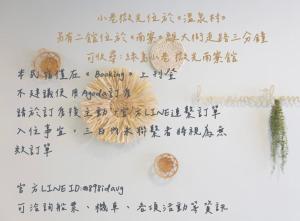 小老微光位於«溫泉村»
另有二館位於«南寮»離大街走路三分鐘
可收尋:綠島小老 微光南寮館
本民宿僅在《Booking》上刊登
不建議使用Agoda訂房
請於訂房後主動+官方LINE連繫訂單
入住事宜,三日內未聯繫者將視為無
效訂單
官方LINE ID:@898idavg
可洽詢船票、機車、各項活動等資訊